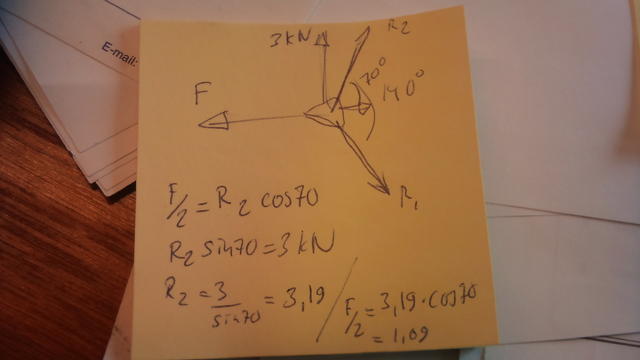 E-mail:
3 kN
R2
70°
140°
F
R1
F/2 = R2 cos70
R2 sin70 = 3 kN
R2 = 3/sin70 = 3,19
F/2 = 3,19 · cos70
= 1,09